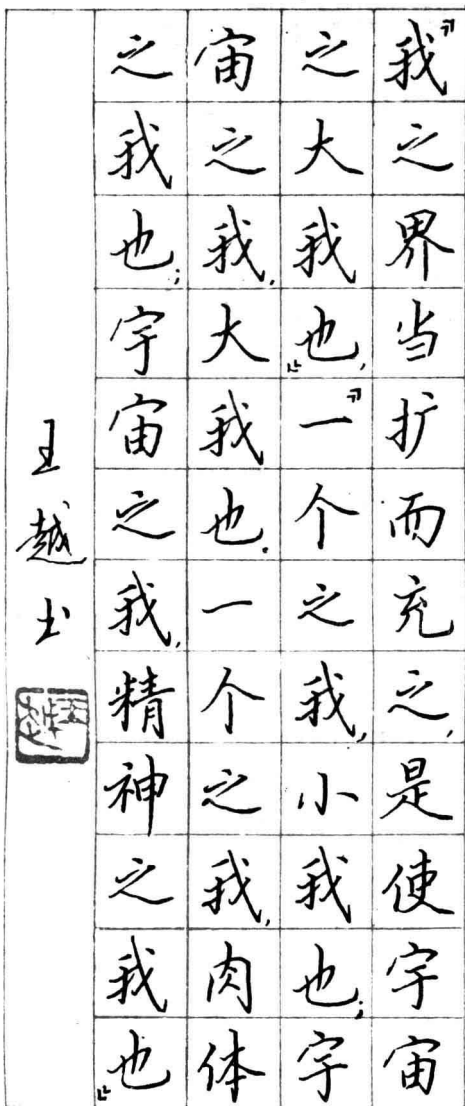 『我之界当扩而充之,是使宇宙
之大我也,』『一个之我,小我也;宇
宙之我,大我也.一个之我,肉体
之我也;宇宙之我,精神之我也』
王越书